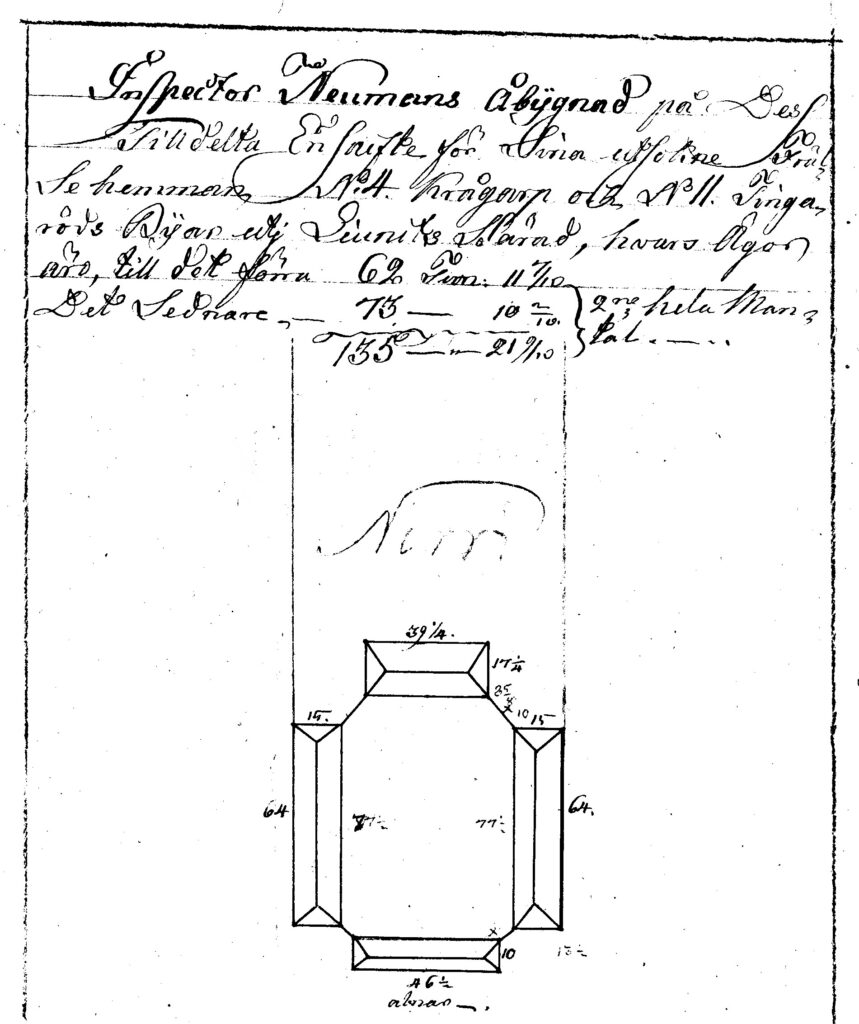 Inspector Neumans Åbygnad på Dess
Tilldelta En skifte för Sina utsokne Fräl
se hemman N:o 4. Krågarp och N 11. Tinga
röds Byar uti Giunits Härad, hvars Ägor
äro, till det förra 62 Tun: 11 7/10
Det Sednare — 73 — 10 2/10. 2ne hela Man
135 — „ — 21 9/10 tal. — . .
Norr
39 1/4.
17 1/4
10
15. 15
64 64.
77 1/2 77 1/2
x
10
13 1/2
46 1/2
alnar —.